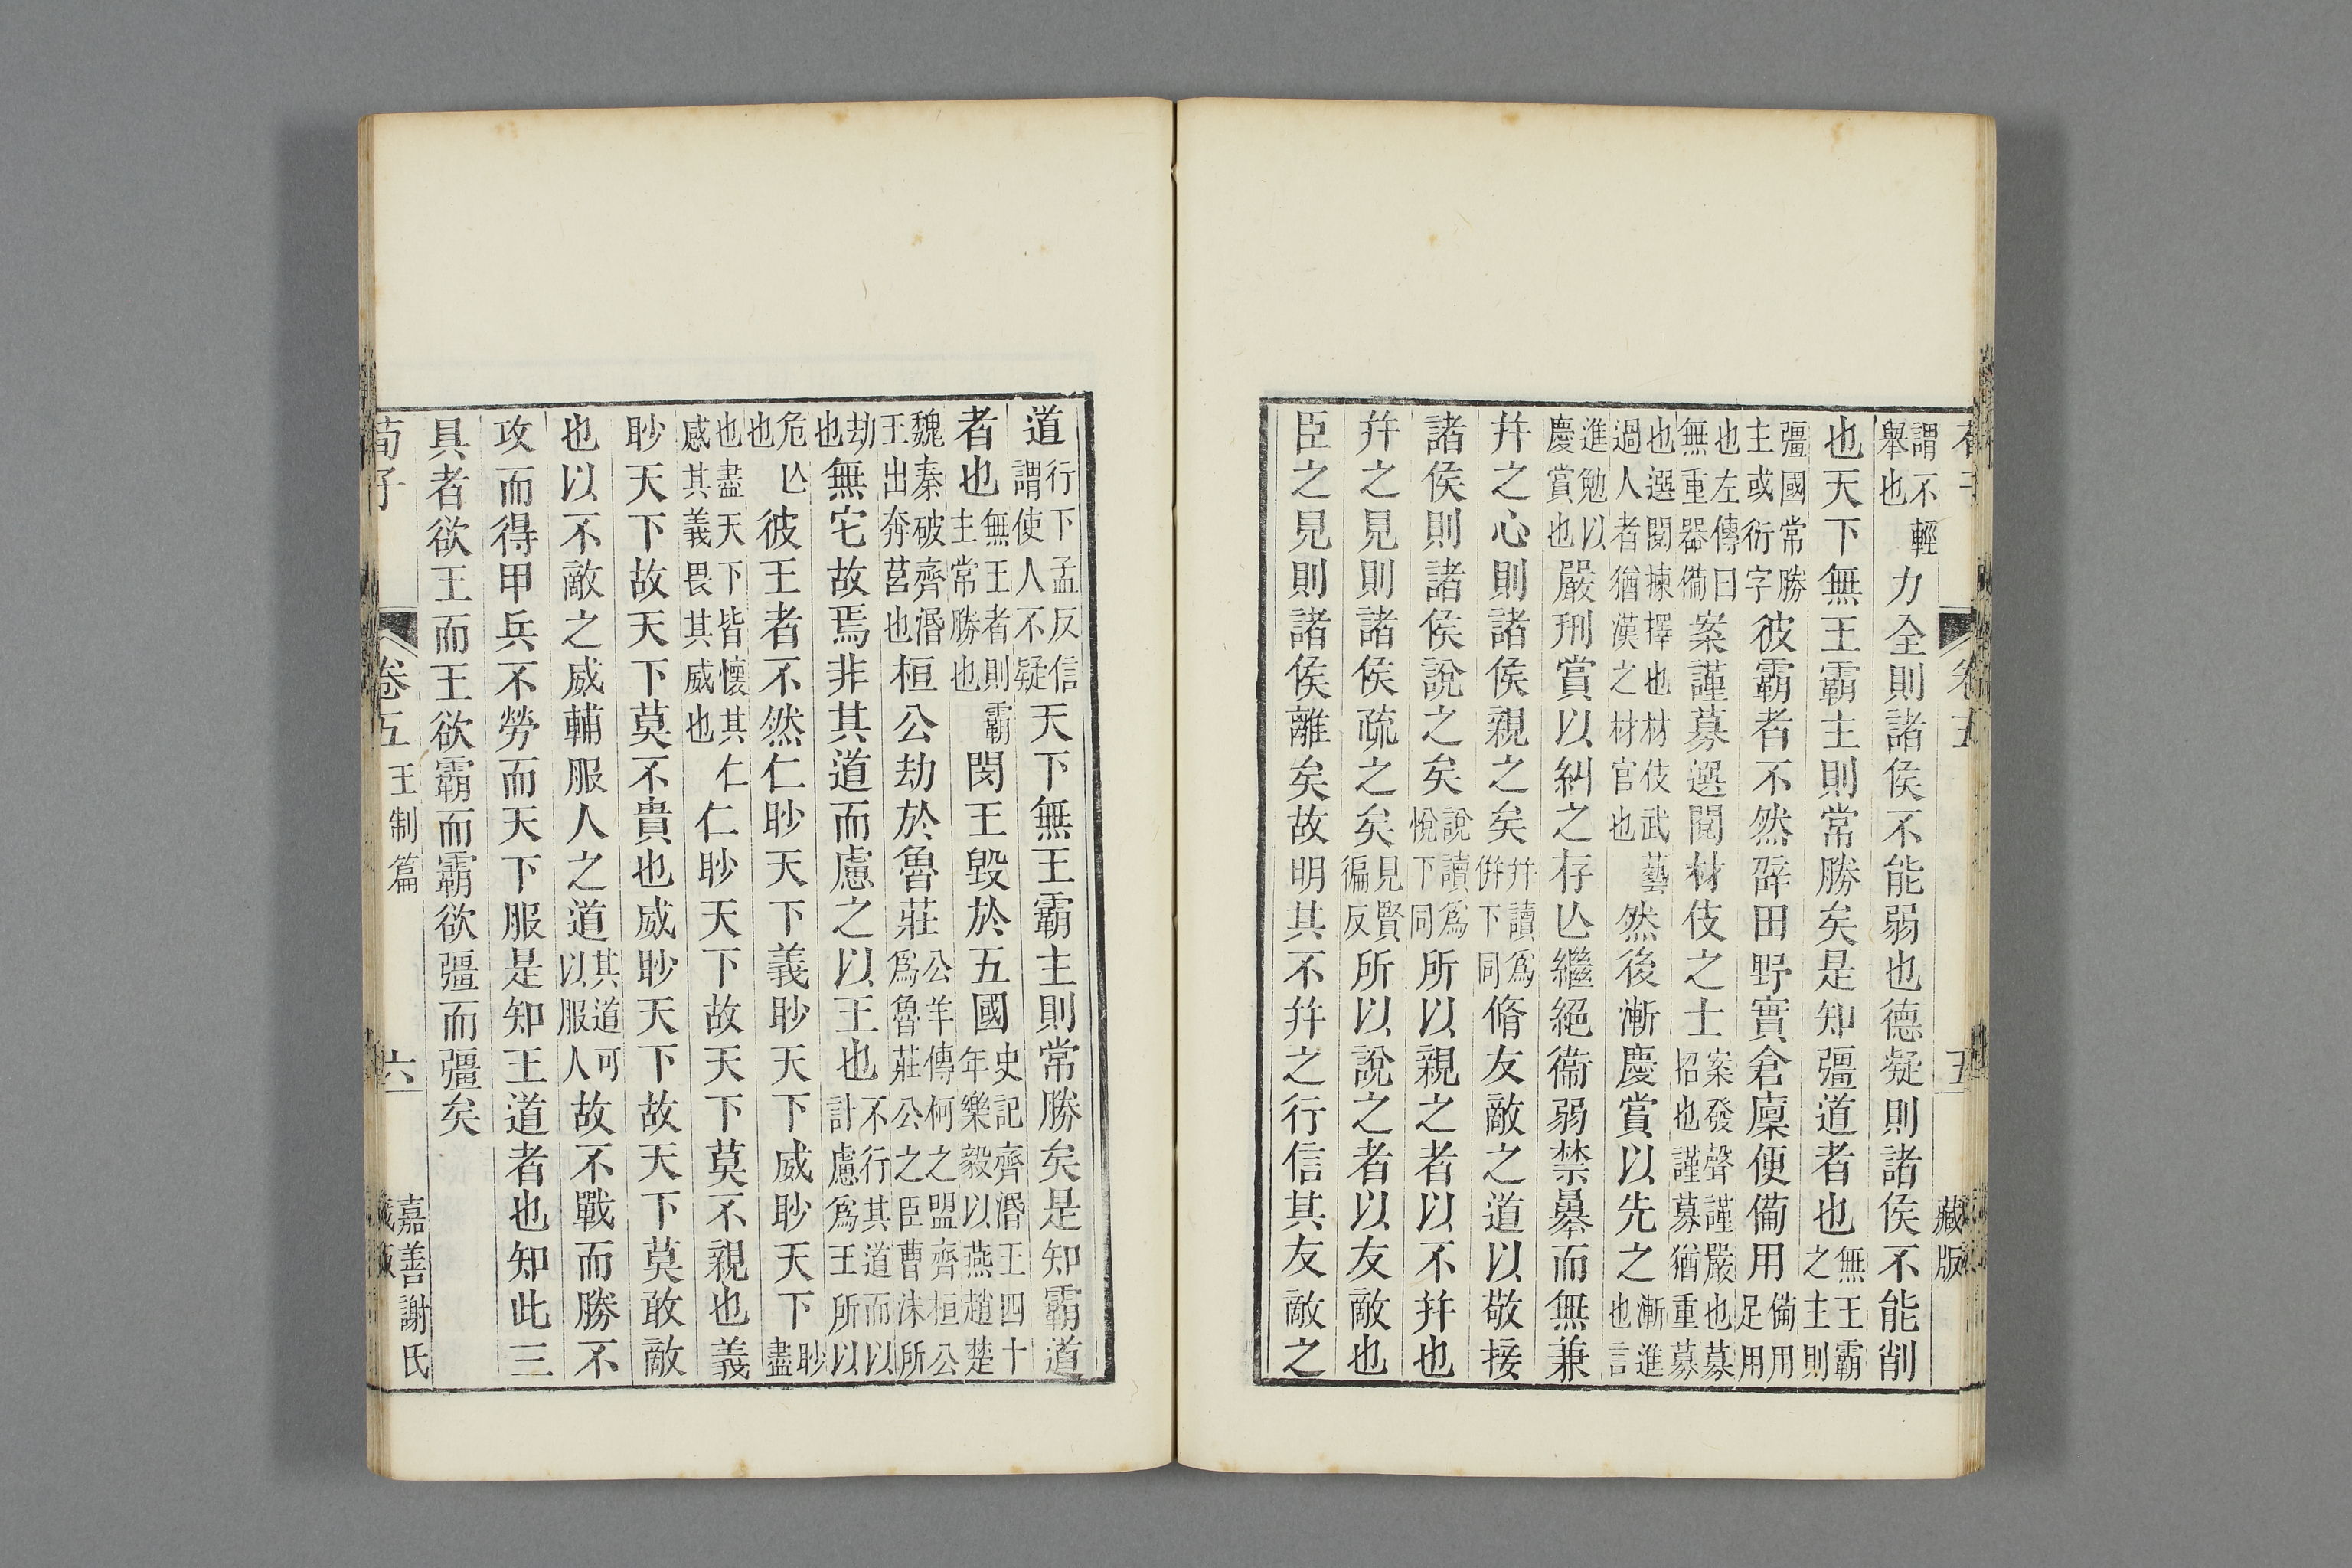 荀子 卷五 五 藏版
謂不輕舉也力全則諸侯不能弱也德凝則諸侯不能削
也天下無王霸主則常勝矣是知彊道者也無王霸之主則
彊國常勝主或衍字彼霸者不然辟田野實倉廩便備用備用足用
也左傳曰無重器備案謹募選閱材伎之士案發聲謹嚴也募招也謹募猶重募
也選閱揀擇也材伎武藝過人者猶漢之材官也然後漸慶賞以先之漸進也言
進勉以慶賞也嚴刑賞以糾之存亾繼絕衞弱禁暴而無兼
幷之心則諸侯親之矣幷讀爲倂下同脩友敵之道以敬接
諸侯則諸侯說之矣說讀爲悅下同所以親之者以不幷也
幷之見則諸侯疏之矣見賢徧反所以說之者以友敵也
臣之見則諸侯離矣故明其不幷之行信其友敵之
道行下孟反信謂使人不疑天下無王霸主則常勝矣是知霸道
者也無王者則霸主常勝也閔王毀於五國史記齊湣王四十年樂毅以燕趙楚
魏秦破齊湣王出奔莒也桓公劫於魯莊公羊傳柯之盟齊桓公爲魯莊公之臣曹沫所
劫也無它故焉非其道而慮之以王也不行其道而以計慮爲王所以
危亾也彼王者不然仁眇天下義眇天下威眇天下眇盡
也盡天下皆懷其仁感其義畏其威也仁眇天下故天下莫不親也義
眇天下故天下莫不貴也威眇天下故天下莫敢敵
也以不敵之威輔服人之道其道可以服人故不戰而勝不
攻而得甲兵不勞而天下服是知王道者也知此三
具者欲王而王欲霸而霸欲彊而彊矣
荀子 卷五 王制篇 六 嘉善謝氏藏版